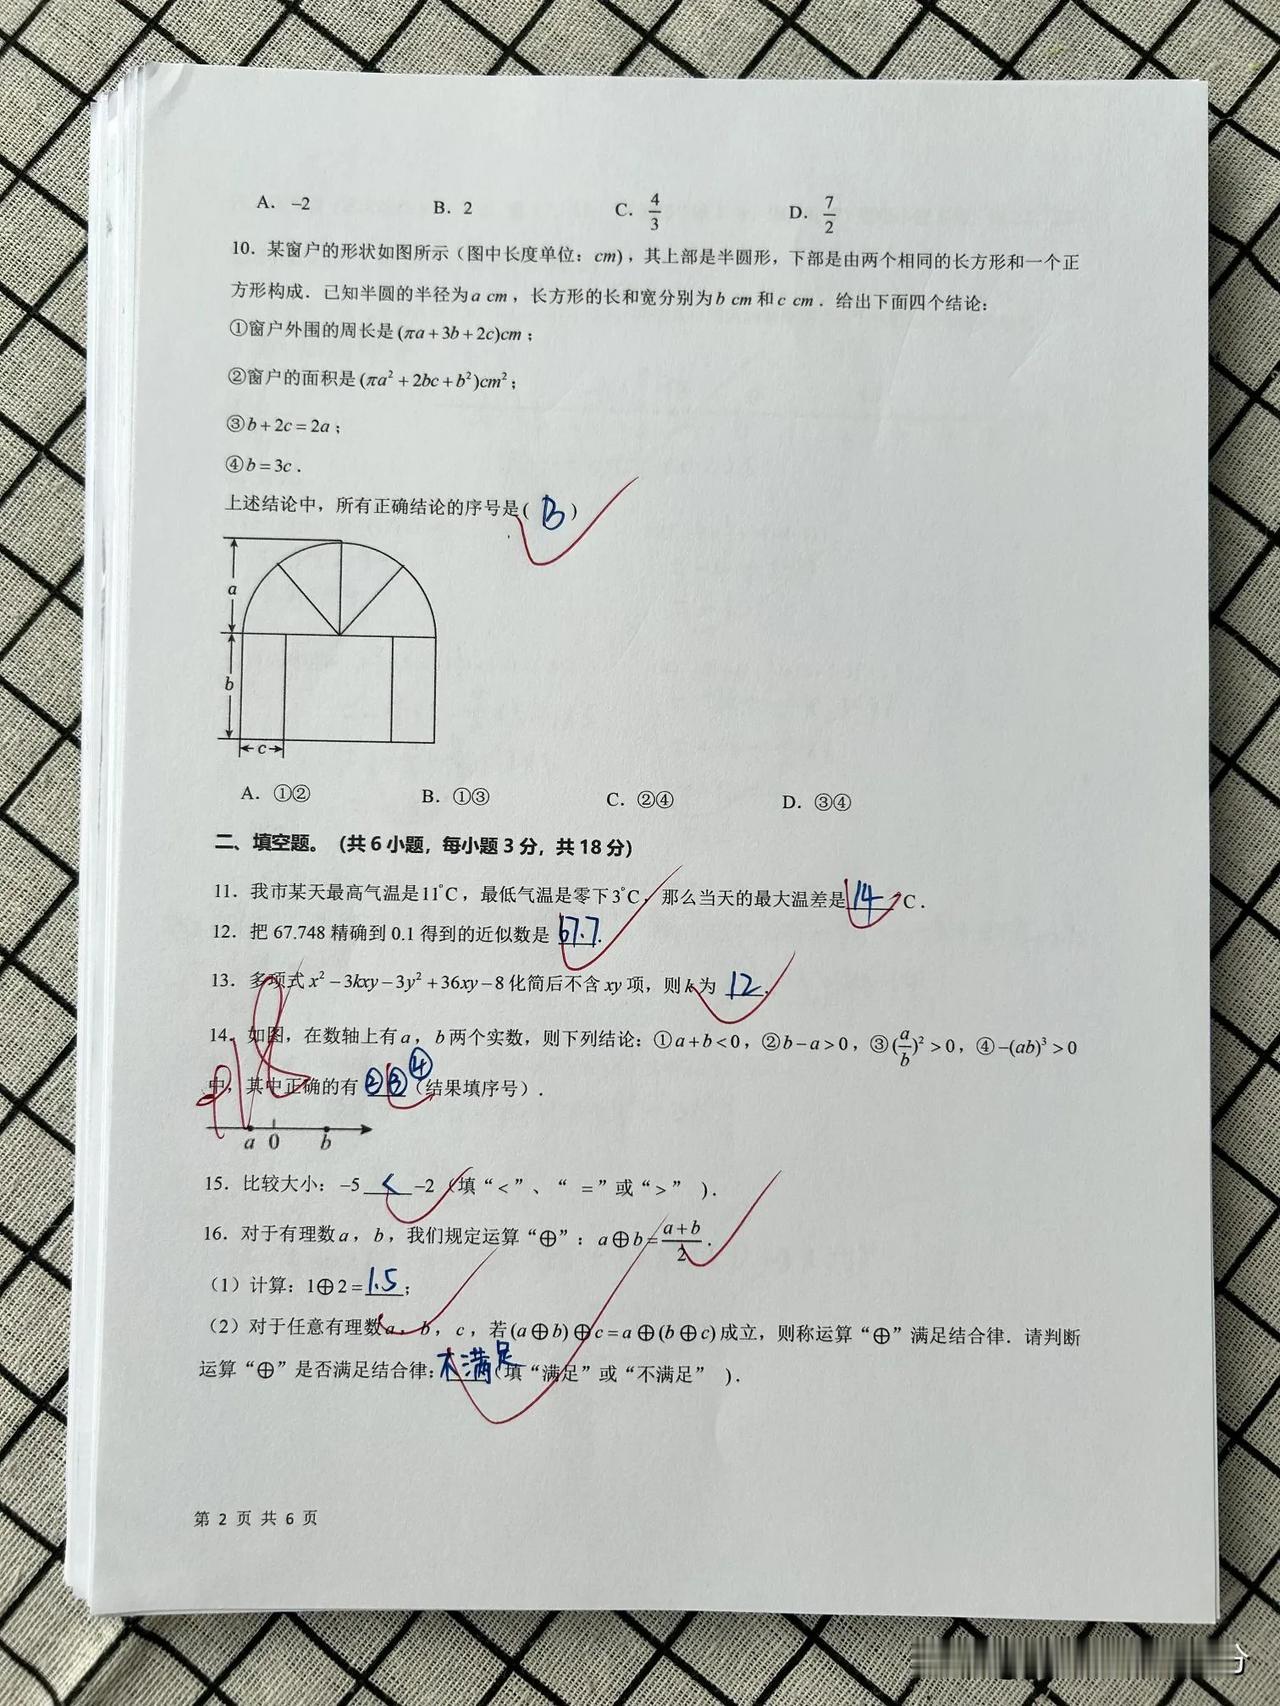 A. −2 B. 2 C. 4/3 D. 7/2
10. 某窗户的形状如图所示（图中长度单位：cm），其上部是半圆形，下部是由两个相同的长方形和一个正
方形构成．已知半圆的半径为a cm，长方形的长和宽分别为b cm和c cm．给出下面四个结论：
①窗户外围的周长是(πa+3b+2c)cm；
②窗户的面积是(πa²+2bc+b²)cm²；
③b+2c=2a；
④b=3c．
上述结论中，所有正确结论的序号是( B )
a
b
c
A. ①② B. ①③ C. ②④ D. ③④
二、填空题。（共6小题，每小题3分，共18分）
11. 我市某天最高气温是11°C，最低气温是零下3°C，那么当天的最大温差是14 C．
12. 把 67.748 精确到 0.1 得到的近似数是 67.7.
13. 多项式x²−3kxy−3y²+36xy−8化简后不含xy项，则k为 12.
14. 如图，在数轴上有a，b两个实数，则下列结论：①a+b<0，②b−a>0，③(a/b)²>0，④−(ab)³>0
中，其中正确的有②③④（结果填序号）．
a 0 b
15. 比较大小：−5 < −2（填“<”、“ =”或“>” ）．
16. 对于有理数a，b，我们规定运算“⊕”：a⊕b=(a+b)/2．
（1）计算：1⊕2=1.5；
（2）对于任意有理数a，b，c，若(a⊕b)⊕c=a⊕(b⊕c)成立，则称运算“⊕”满足结合律．请判断
运算“⊕”是否满足结合律：不满足（填“满足”或“不满足” ）．
第 2 页 共 6 页